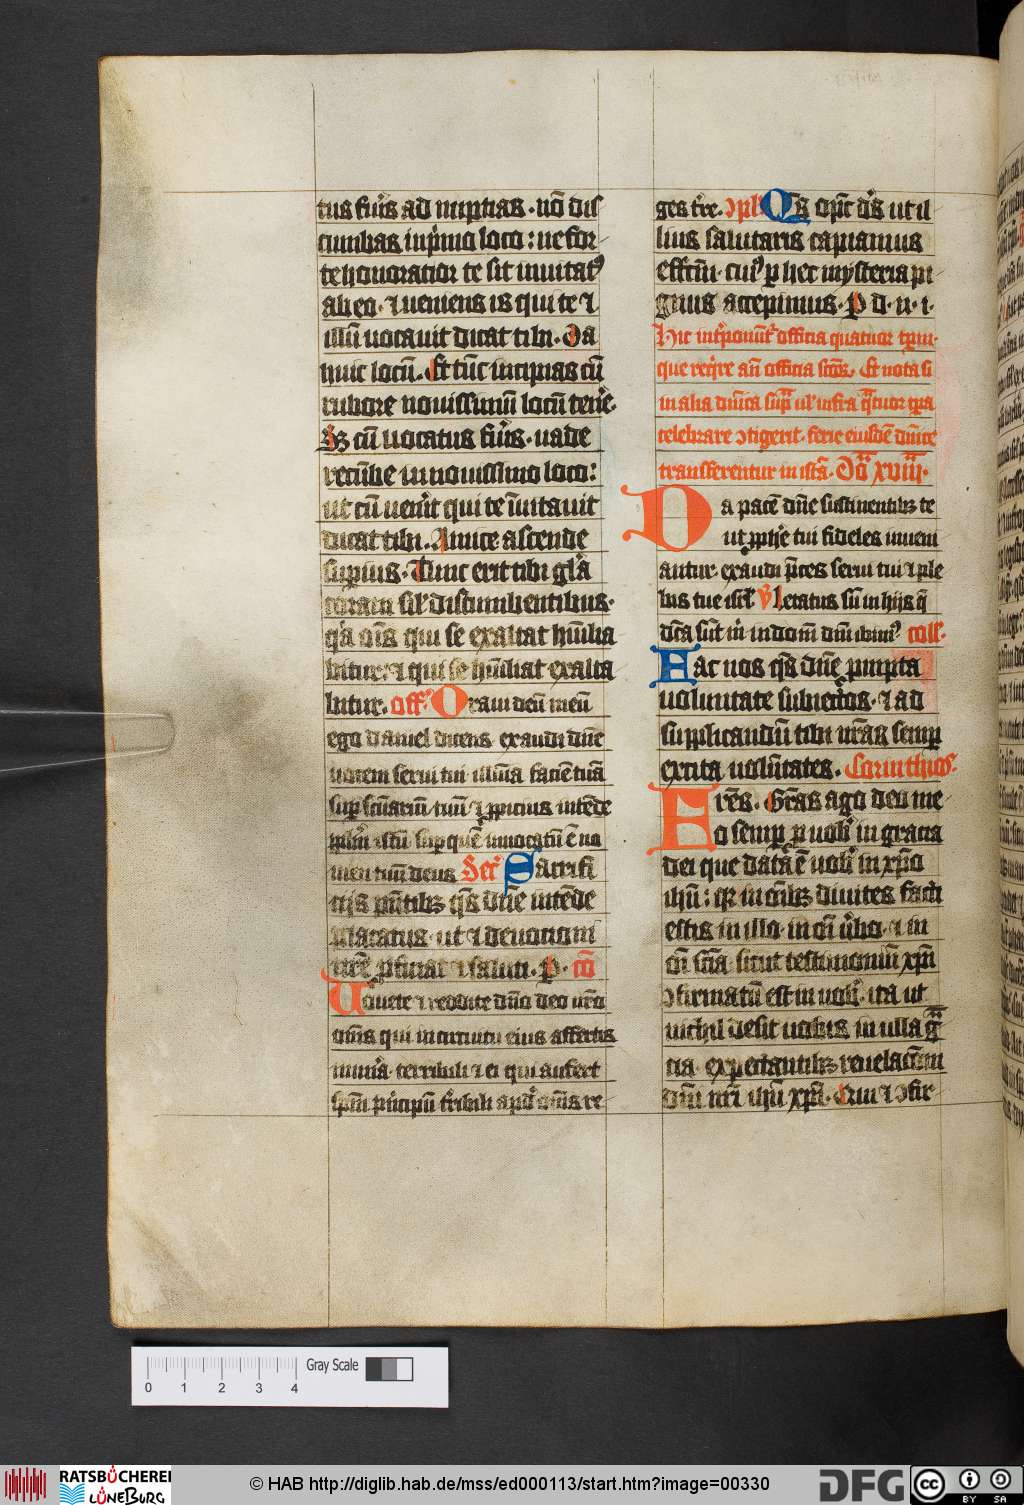 tus fu̾is ad nuptias · nō dis
cumbas in p̾mo loco : ne for
te honoratior te sit inuitat⁹
ab eo · ⁊ ueniens is qui te ⁊
illū uocauit dicat tibi · Da
huic locū · Et tūc incipias cū
rubore nouissimū locū tene̾ ·
Sꝫ cū uocatus fu̾is · uade
recūbe in nouissimo loco :
ut cū uen̾it qui te īuitauit
dicat tibi · Amice ascende
sup̱ius · Tunc erit tibi gl̄a
coram sil̾ discumbentibus ·
q̄a oīs qui se exaltat hūilia
bitur : ⁊ qui se hūiliat exalta
bitur · Off̾ Oraui deū meū
ego daniel dicens exaudi dn̄e
uocem serui tui illūīa faciē tuā
sup̱ sc̄uariū tuū ⁊ ꝓpicius intēde
pp̱lm̄ istū sup̱ quē inuocatū ē no
men tuū deus Sec̾ Sacrifi
cijs pn̄tibꝫ q̄s dn̄e intēde
placatus · ut ⁊ deuotioni
nr̄e ꝓficiat ⁊ saluti · P̱ · Cō
Uouete ⁊ reddite dn̄o deo ur̄o
om̄s qui in circuitu eius affertis
mun̾a · terribili ⁊ ei qui aufert
spm̄ p̾ncipū tr̾ibili apd̾ om̄s re
ges tr̄e · ↄpl̾ Qs̄ op̄c ds̄ ut il
lius salutaris capiamus
effc̄m · cui⁹ p̱ hec mysteria pi
gnus accepimus · P̱ d · n · i ·
Hic int̾ponūt̾ officia quatuor tp̱m ·
que req̾re an̄ officia sc̄oꝝ · Et nota si
in alia dn̄ica sup̄ ul̾ infra q̄tuor tp̱ra
celebrare ↄtigerit · ferie eiusdē dn̄ice
transferentur in istā · Dō xviii ·
Da pacē dn̄e sustinentibꝫ te
ut ꝓph̾e tui fideles inueni
antur · exaudi p̄ces serui tui ⁊ ple
bis tue isr̄l V̾ Letatus sū in hijs q̄
dc̄a sūt m̾ in domū dn̄i ibim⁹ Coll̾ ·
Hac nos q̄s dn̄e p̱mpta
uoluntate subiectos · ⁊ ad
supplicandū tibi nr̄as semp̱
excita uolūtates · Corinthios ·
Fres̄ · Gr̄as ago deo me
o semp̱ p̱ uob̾ in gracia
dei que data ē uob̾ in xp̄o
ihū : qꝛ in om̄ibꝫ diuites facti
estis in illo · in oī u̾bo · ⁊ in
oī sc̄ia · sicut testimoniū xp̄i
ↄfirmatū est in uob̾ · ita ut
nichil desit uobis in ulla gr̄a
cia · expectantibꝫ reuelac̄om
dn̄i nr̄i ihū xp̄i · Qui ⁊ ↄfir
Gray Scale
0 1 2 3 4
RATSBÜCHEREI
LÜNEBURG
© HAB http://diglib.hab.de/mss/ed000113/start.htm?image=00330
DFG
cc BY SA